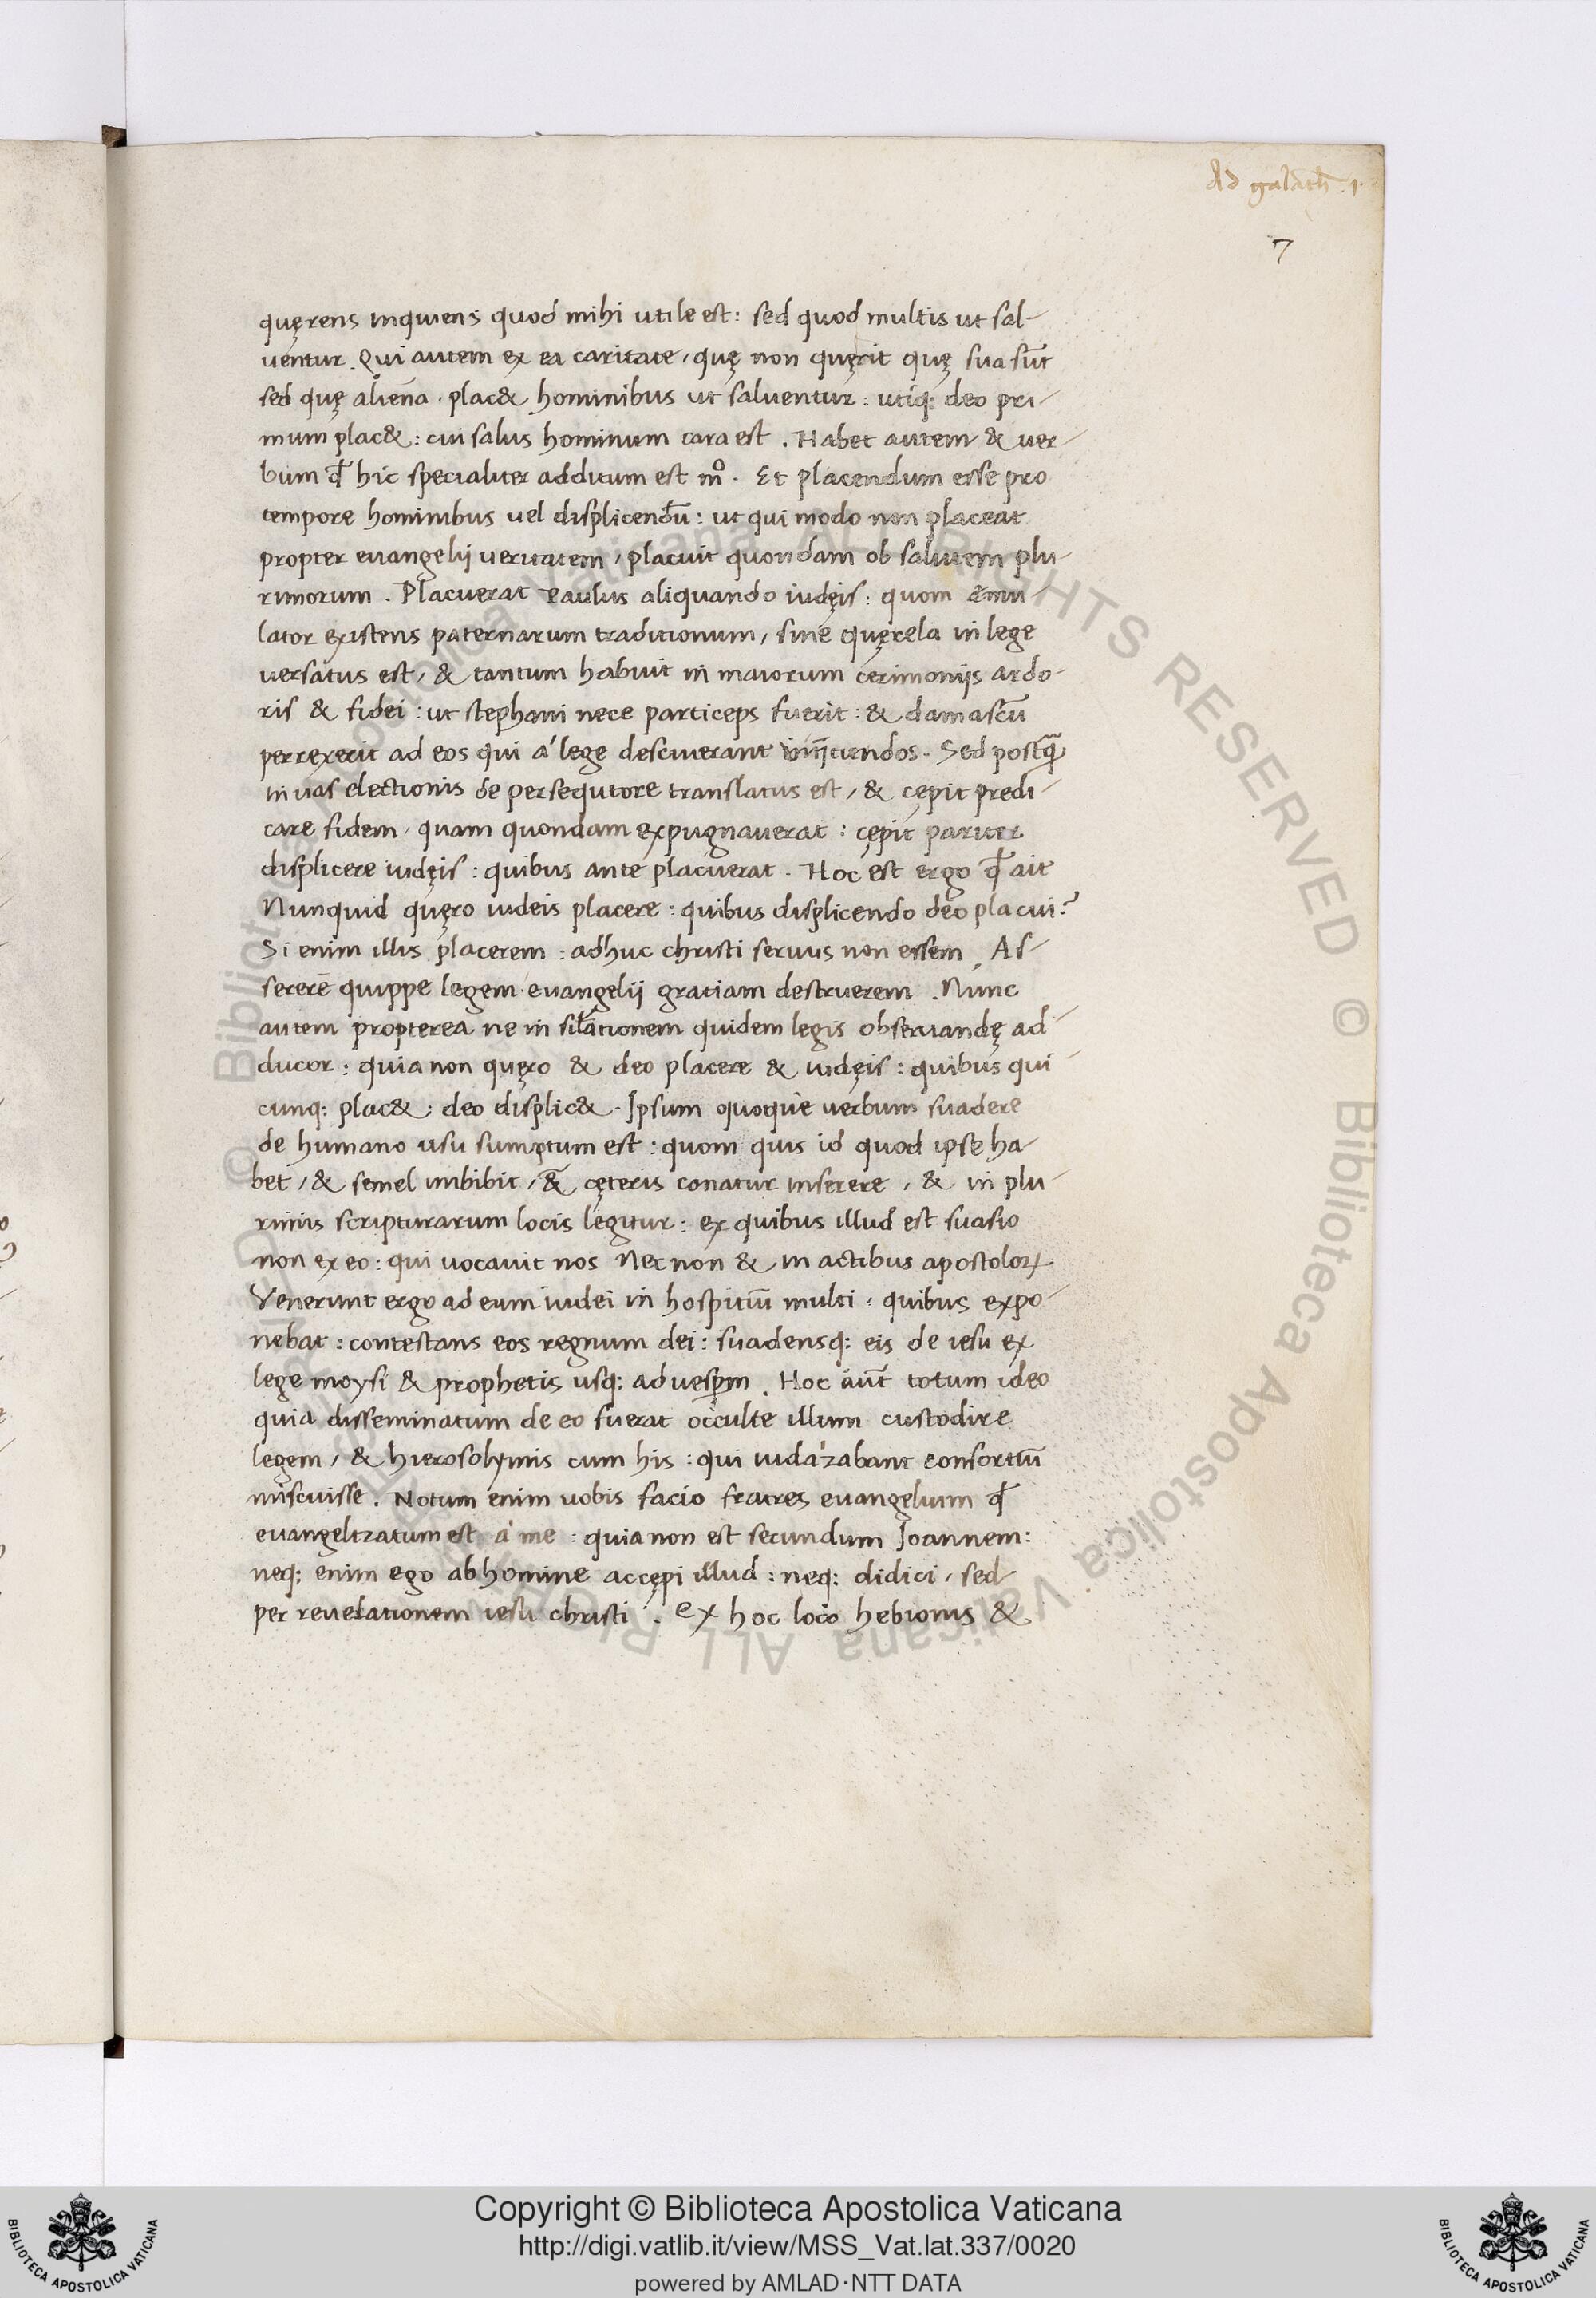 Ad galath̄ . 1.
7
quęrens inquiens quod mihi utile est: sed quod multis ut sal-
uentur. Qui autem ex ea caritate, quę non quęrit quę sua sūt
sed quę aliena. plac& hominibus ut saluentur: utiq; deo pri-
mum plac&: cui salus hominum cara est. Habet autem & uer-
bum qđ hic specialiter additum est mͦ. Et placendum esse pro
tempore hominibus uel displicendū: ut qui modo non placeat
propter euangelij ueritatem, placuit quondam ob salutem plu-
rimorum. Placuerat Paulus aliquando iudęis: quom ęmu-
lator existens paternarum traditionum, sine quęrela in lege
uersatus est, & tantum habuit in maiorum cerimonijs ardo-
ris & fidei: ut stephani nece particeps fuerit: & damascū
perrexerit ad eos qui á lege desciuerant Sed postꝙ̄
in uas electionis de persequtore translatus est, & cępit predi-
care fidem, quam quondam expugnauerat: cępit pariter
displicere iudęis: quibus ante placuerat. Hoc est ergo qđ ait
Nunquid quęro iudeis placere: quibus displicendo deo placui?
Si enim illis placerem: adhuc christi seruus non essem. As-
serere quippe legem euangelij gratiam destruerem. Nunc
autem propterea ne in sił̄ationem quidem legis obseruandę ad-
ducor: quia non quęro & deo placere & iudęis: quibus qui-
cunq; plac&: deo displic&. Ipsum quoque uerbum suadere
de humano usu sumptum est: quom quis id quod ipse ha-
bet, & semel imbibit, & cęteris conatur inserere, & in plu-
rimis scripturarum locis legitur: ex quibus illud est suasio
non ex eo: qui uocauit nos Nec non & in actibus apostoloꝝ
Venerunt ergo ad eum iudei in hospitiū multi, quibus expo-
nebat: contestans eos regnum dei: suadensq; eis de iesu ex
lege moysi & prophetis usq; ad uesꝑm. Hoc aūt totum ideo
quia disseminatum de eo fuerat occulte illum custodire
legem, & hierosolymis cum his: qui iudaizabant consortiū
miscuisse. Notum enim uobis facio fratres euangelium qđ
euangelizatum est á me: quia non est secundum Ioannem:
neq; enim ego ab homine accępi illud: neq; didici, sed
per reuelationem iesu christi. Ex hoc loco hebionis &
© Biblioteca Apostolica Vaticana ALL RIGHTS RESERVED © Biblioteca Apostolica Vaticana ALL RIGHTS RESERVED
Copyright © Biblioteca Apostolica Vaticana
http://digi.vatlib.it/view/MSS_Vat.lat.337/0020
powered by AMLAD·NTT DATA
BIBLIOTECA APOSTOLICA VATICANA
BIBLIOTECA APOSTOLICA VATICANA